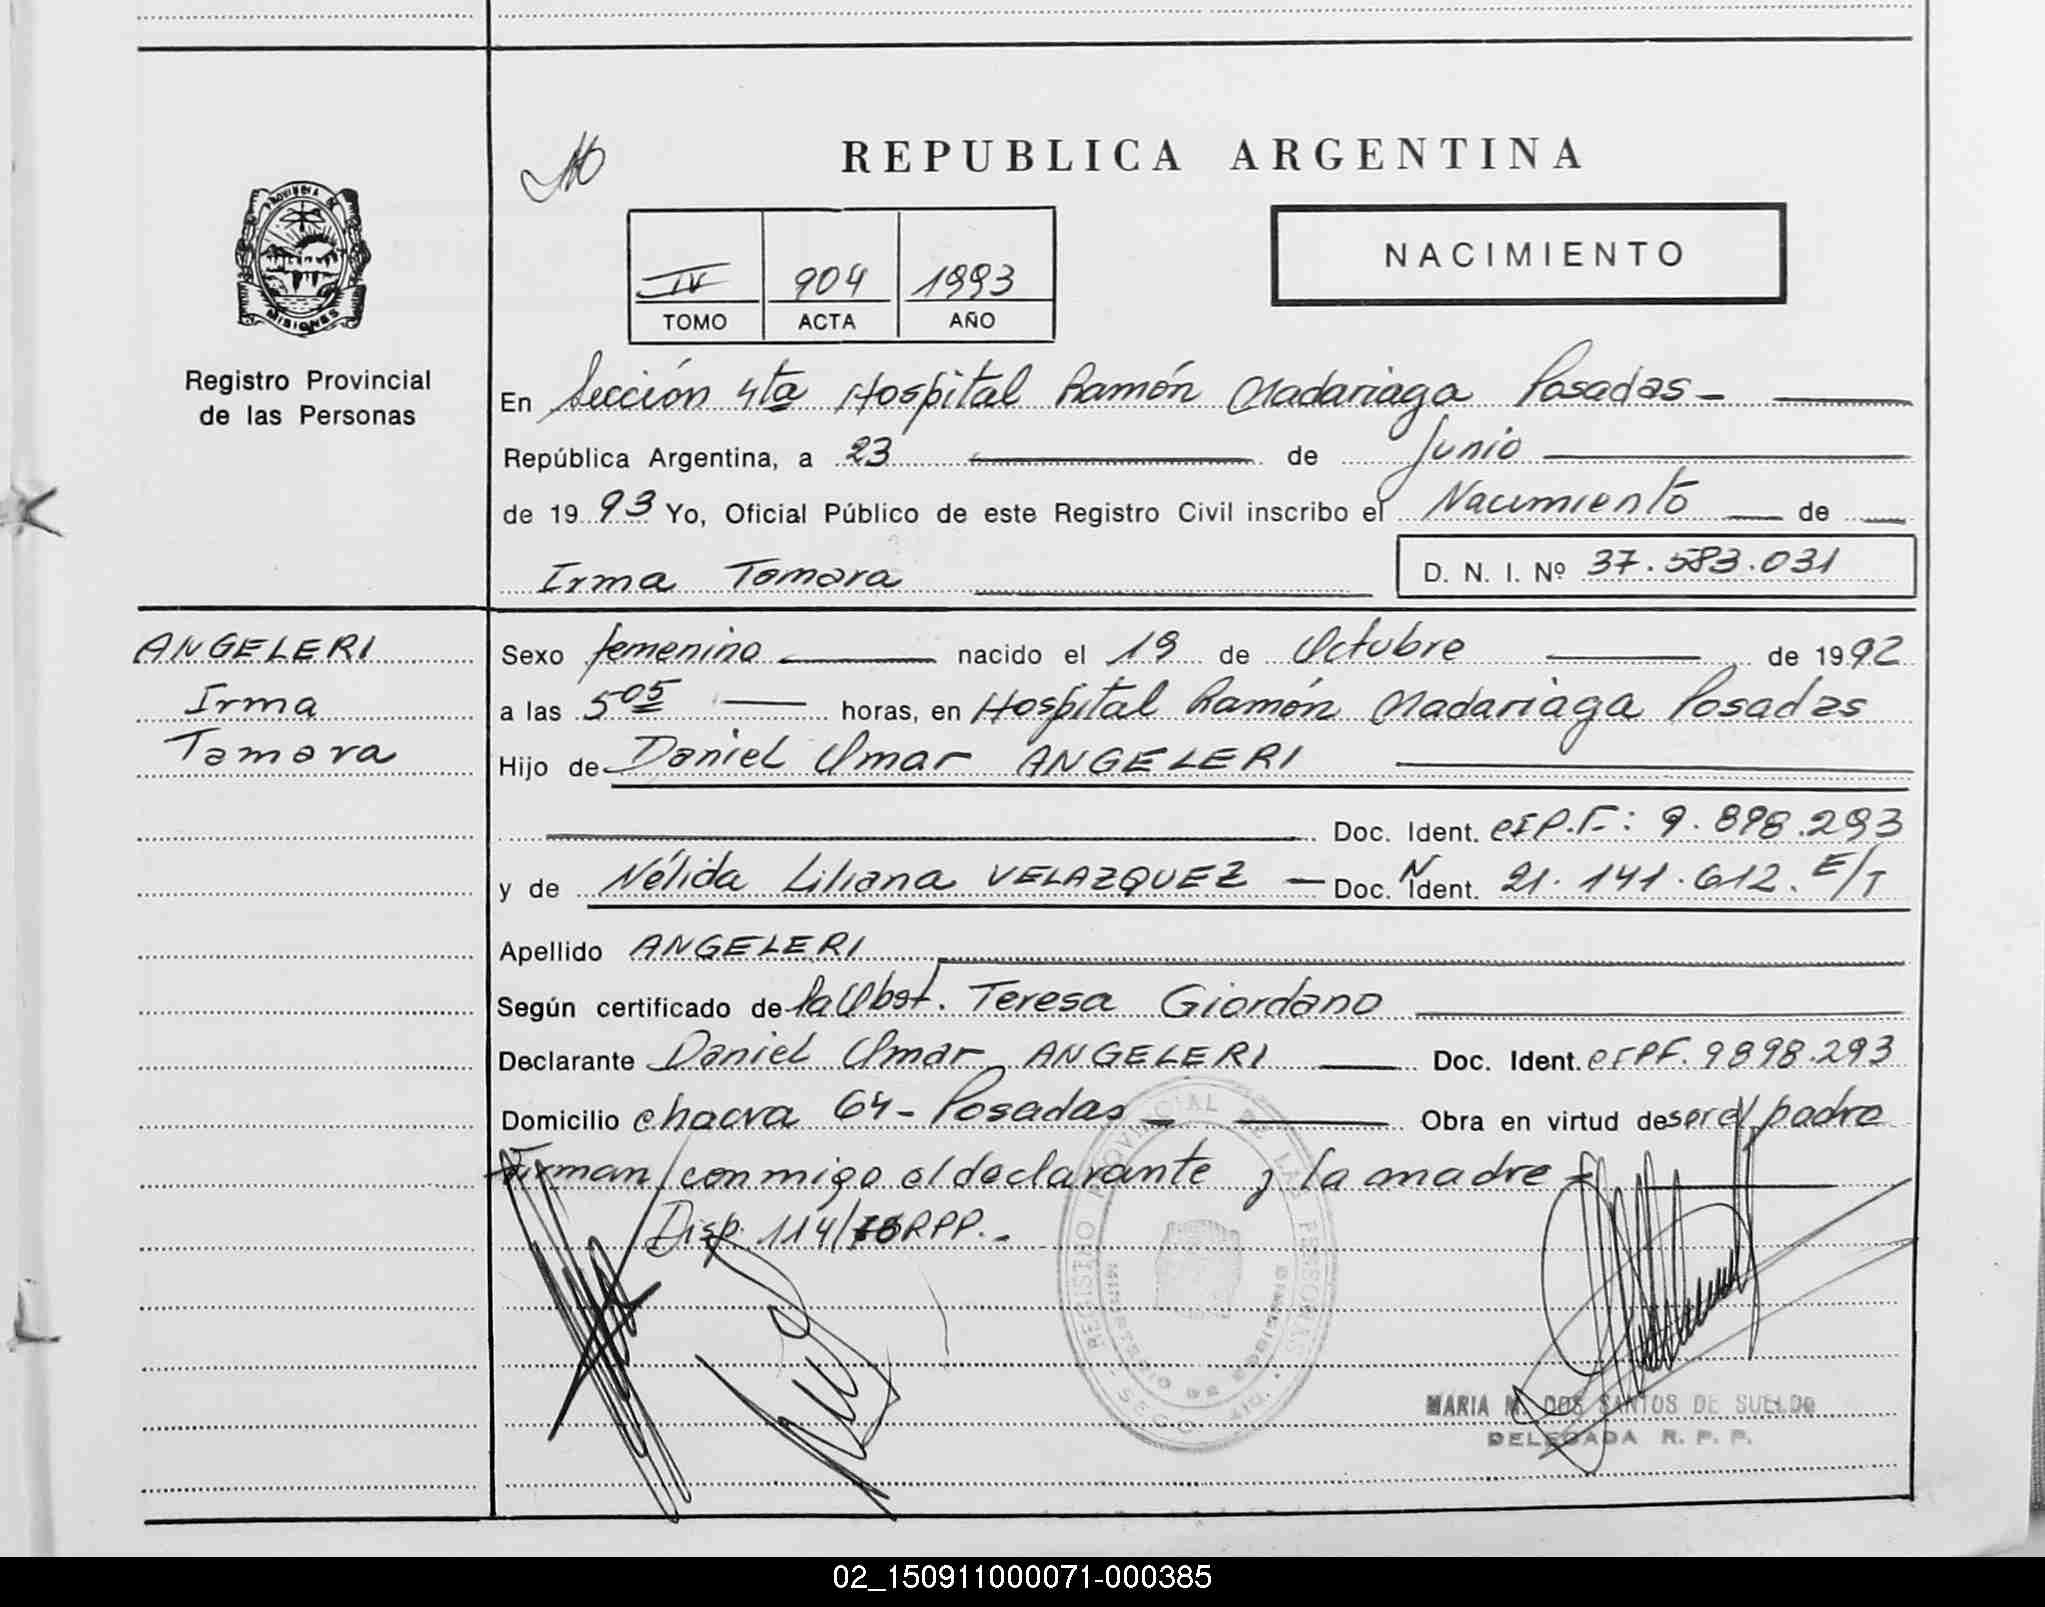 REPUBLICA ARGENTINA
PROVINCIA DE
MISIONES
Registro Provincial
de las Personas
NACIMIENTO
IV 904 1993
TOMO ACTA AÑO
En Sección 4ta Hospital Ramón Madariaga Posadas -
República Argentina, a 23 de Junio
de 1993 Yo, Oficial Público de este Registro Civil inscribo el Nacimiento de
Irma Tamara D. N. I. Nº 37.583.031
ANGELERI
Irma
Tamara
Sexo femenino nacido el 19 de Octubre de 1992
a las 5 05 horas, en Hospital Ramón Madariaga Posadas
Hijo de Daniel Omar ANGELERI
Doc. Ident. CIP.F.: 9.898.293
y de Nélida Liliana VELAZQUEZ - Doc. Ident. N 21.141.612. E/T
Apellido ANGELERI
Según certificado de la Obst. Teresa Giordano
Declarante Daniel Omar ANGELERI Doc. Ident. CIPF. 9898.293
Domicilio chacra 64 - Posadas Obra en virtud de ser el padre
Firman conmigo el declarante y la madre
Disp. 114/78 RPP.-
REGISTRO PROVINCIAL DE LAS PERSONAS
MINISTERIO DE GOBIERNO
MARIA M. DOS SANTOS DE SUELDO
DELEGADA R. P. P.
02_150911000071-000385